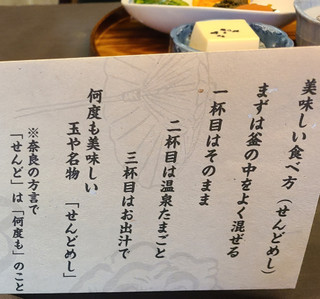 美味しい食べ方（せんどめし）
まずは釜の中をよく混ぜる
一杯目はそのまま
二杯目は温泉たまごと
三杯目はお出汁で
何度も美味しい
玉や名物　「せんどめし」
※奈良の方言で
「せんど」は「何度も」のこと